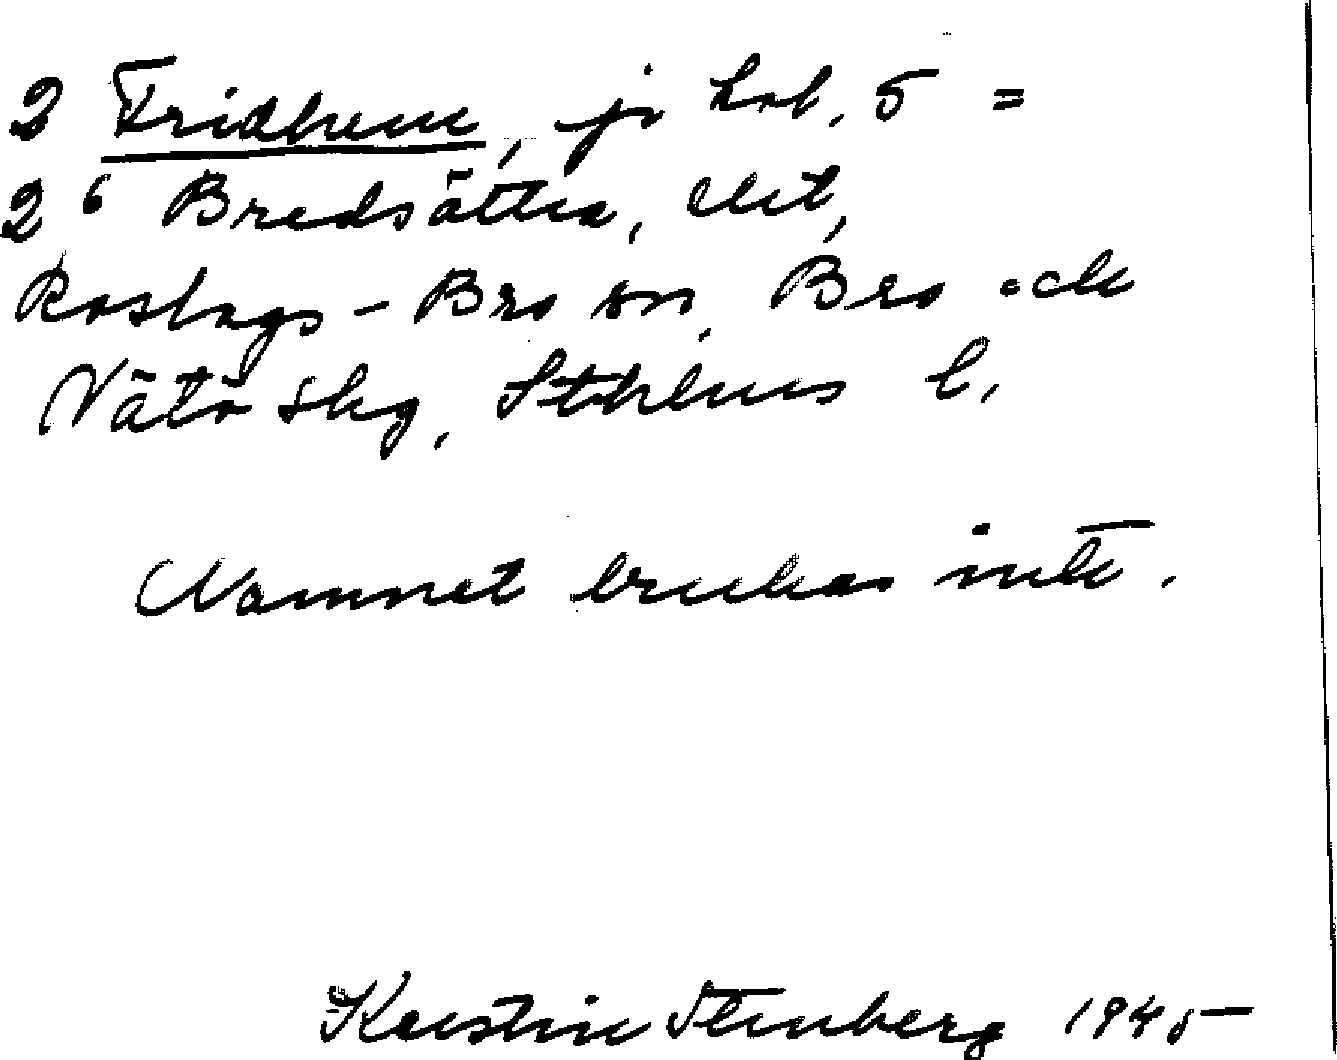 2 Fridhem, jr hrl. 5 =
2⁶ Bredsättra,
Roslags-Bro sn, Bro och
Vätö skg, Sthlms l.
Namnet brukas inte.
Kerstin Stenberg 1945